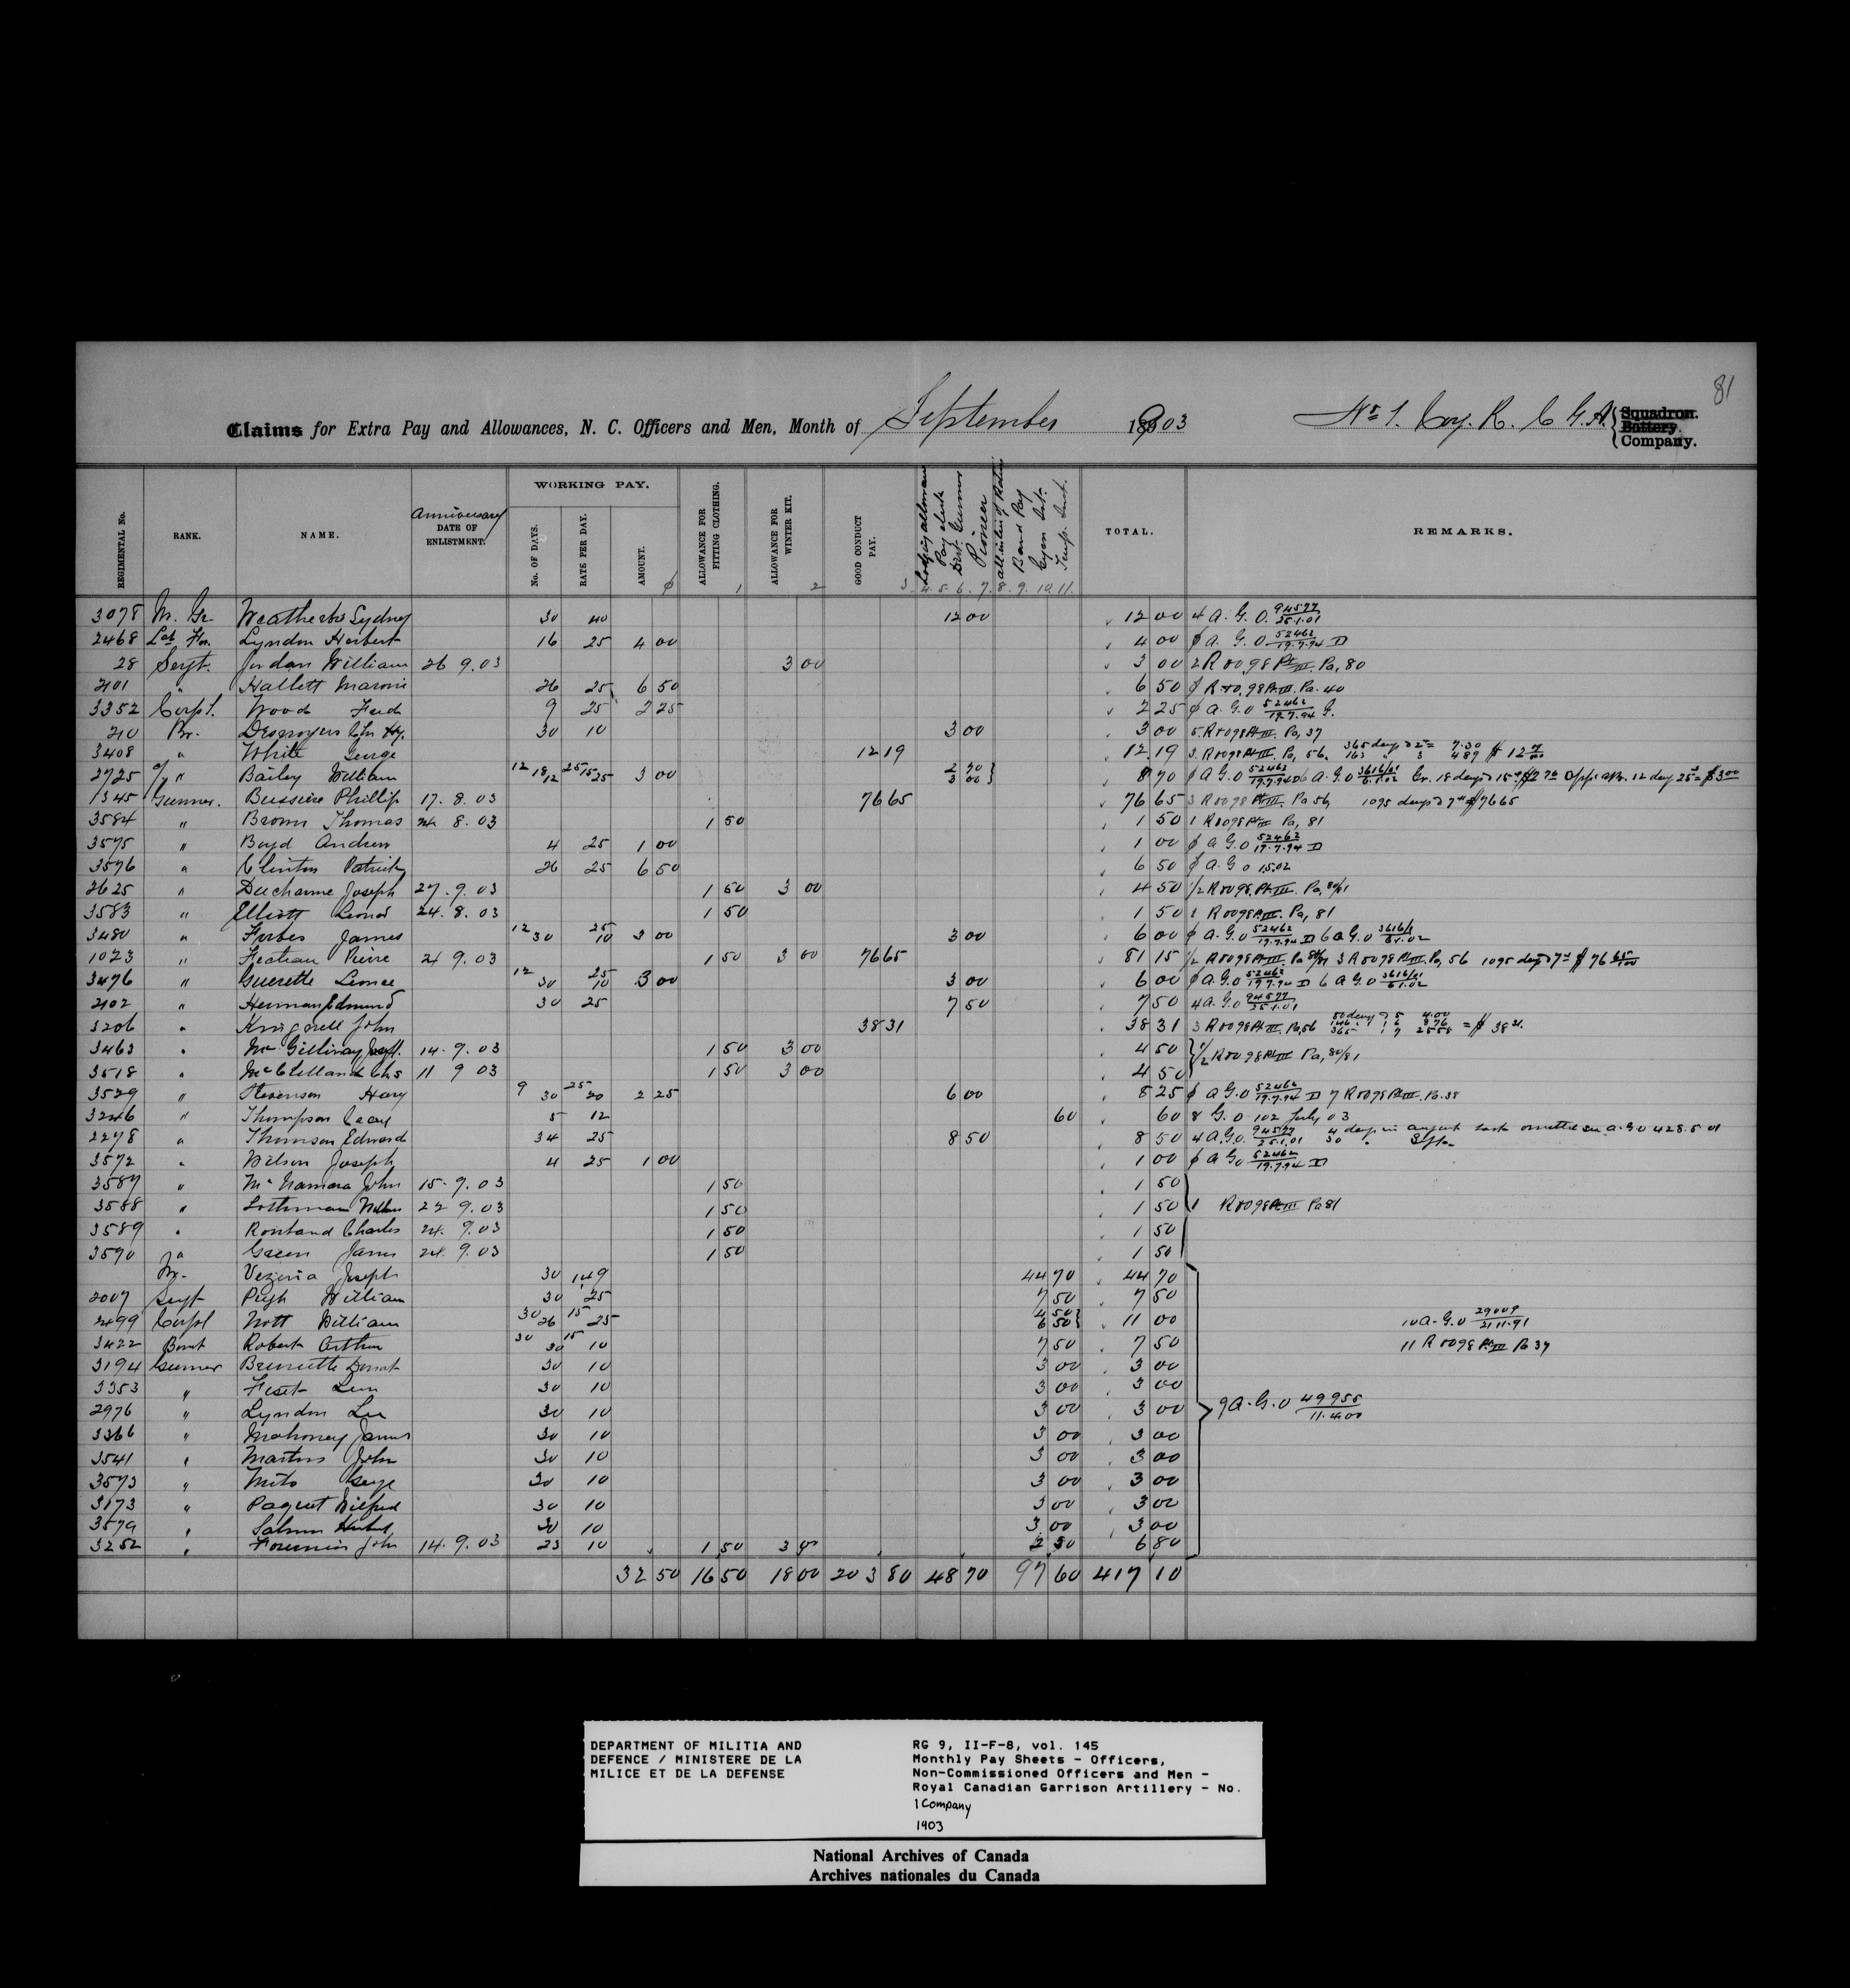 81
Claims for Extra Pay and Allowances, N. C. Officers and Men, Month of September 1903 No 1. Coy. R. C. G. A. { Squadron. Battery. Company.
REGIMENTAL No. RANK. NAME. Anniversary DATE OF ENLISTMENT. WORKING PAY. No. OF DAYS. RATE PER DAY. AMOUNT. ALLOWANCE FOR FITTING CLOTHING. ALLOWANCE FOR WINTER KIT. GOOD CONDUCT PAY. Lodging allowance Pay clerk Dist. Gunner Pioneer Band Pay TOTAL. REMARKS.
φ 1 2 3 4. 5. 6. 7. 8. 9. 10. 11.
3078 M. Gr. Sydney 30 40 12 00 12 00 4 A. G. O. 94577/25.1.01
2468 Lyndon Herbert 16 25 4 00 4 00 φ A. G. O 52462/19.7.94 D
28 Sergt. Jordan William 26 9.03 3 00 3 00 2 R 0098 Pt III. Pa, 80
2101 " Hallett 26 25 6 50 6 50 φ R 0098 Pt III. Pa. 40
3352 Corpl. Wood Fred 9 25 2 25 2 25 φ A. G. O 52462/19.7.94 G.
210 Br. Desnoyers 30 10 3 00 3 00 5. R 0098 Pt III. Pa, 37
3408 " White George 12 19 12.19 3. R 0098 Pt III. Pa, 56. 365 days 2 = 7.30 163 " 3 4.89
2725 " Bailey William 12 18/12 25/15/25 3 00 2 70 3 00 } 8 70 φ A G.O 52462/19.7.94 D 6 A. G. O 3616/01/6.1.02 Gr. 18 days 15 12 day 25 = $3 00
1345 Gunner. Bussiere Phillip 17. 8. 03 76 65 76 65 3 R 0098 Pt III Pa 56 1095 days 7 $76 65
3584 " Brown Thomas 24 8. 03 1 50 1 50 1 R 0098 Pt III Pa, 81
3575 " Boyd Andrew 4 25 1 00 1 00 φ A G. O 52462/19.7.94 D
3576 " Clinton Patrick 26 25 6 50 6 50 φ A. G O 15.02
2625 " Ducharme Joseph 27. 9. 03 1 50 3 00 4 50 1/2 R 0098. Pt III. Pa, 80/81
3583 " Elliott 24. 8. 03 1 50 1 50 1 R 0098 Pt III. Pa, 81
3480 " Forbes James 12 30 25 10 3 00 3 00 6 00 φ A. G. O 52462/19.7.94 D 6 A G. O 3616/1/6.1.02
1023 " Pierre 24 9.03 1 50 3 00 76 65 81 15 1/2 R 0098 Pt III. Pa 80/81 3 R 0098 Pt III. Pa, 56 1095 days 7 $ 76 65/100
3476 " Guerette Leonce 12 30 25 10 3 00 3 00 6 00 φ A. G. O 52462/19.7.94 D 6 A G. O 3616/01/6.1.02
2102 " Herman Edmund 30 25 7 50 7 50 4 A. G. O 94577/25.1.01
3206 " John 38 31 38 31 3 R 0098 Pt III. Pa, 56 80 days 5 4.00 146 " 6 8 76 365 " 7 25 55 = $ 38 31.
3463 " McGillivray 14. 9. 03 1 50 3 00 4 50 } 1/2 R 0098 Pt III Pa, 80/81
3518 " McClelland Chs 11 9 03 1 50 3 00 4 50
3529 " Stevenson Harry 9 30 25 20 2 25 6 00 8 25 φ A. G. O 52462/19.7.94 D 7 R 0098 Pt III. Pa. 38
3246 " Thompson 5 12 60 60 8 G. O 102 July, 03
2278 " Thomson Edward 34 25 8 50 8 50 4 A. G. O. 94577/25.1.01 4 days in august
3572 " Wilson Joseph 4 25 1 00 1 00 φ A G O 52462/19.7.94 D
3587 " McNamara John 15. 9. 03 1 50 1 50
3588 " 22 9. 03 1 50 1 50 1 R 0098 Pt III Pa 81
3589 " Charles 24. 9.03 1 50 1 50
3590 " Green James 24. 9. 03 1 50 1 50
Vezina Joseph 30 1.49 44 70 44 70
2007 Sergt Pugh William 30 25 7 50 7 50
2499 Corpl Nott William 30 26 15 25 4 50 6 50 } 11 00 10 A. G. O 29009/21.11.91
3422 Bomb Robert Arthur 30 30 15 10 7 50 7 50 11 R 0098 Pt III Pa 37
3194 Gunner Brunette Donat 30 10 3 00 3 00
3353 " Fiset 30 10 3 00 3 00
2976 " Lyndon 30 10 3 00 3 00 9 A. G. O 49955/11.4.00
3366 " Mahoney James 30 10 3 00 3 00
3541 " Martin John 30 10 3 00 3 00
3573 " 30 10 3 00 3 00
3173 " Paquet Wilfred 30 10 3 00 3 00
3579 " 30 10 3 00 3 00
3252 " Fournier John 14. 9. 03 23 10 1 50 3 00 2 30 6 80
32 50 16 50 18 00 203 80 48 70 97 60 417 10
DEPARTMENT OF MILITIA AND
DEFENCE / MINISTERE DE LA
MILICE ET DE LA DEFENSE
RG 9, II-F-8, vol. 145
Monthly Pay Sheets - Officers,
Non-Commissioned Officers and Men -
Royal Canadian Garrison Artillery - No.
1 Company
1903
National Archives of Canada
Archives nationales du Canada